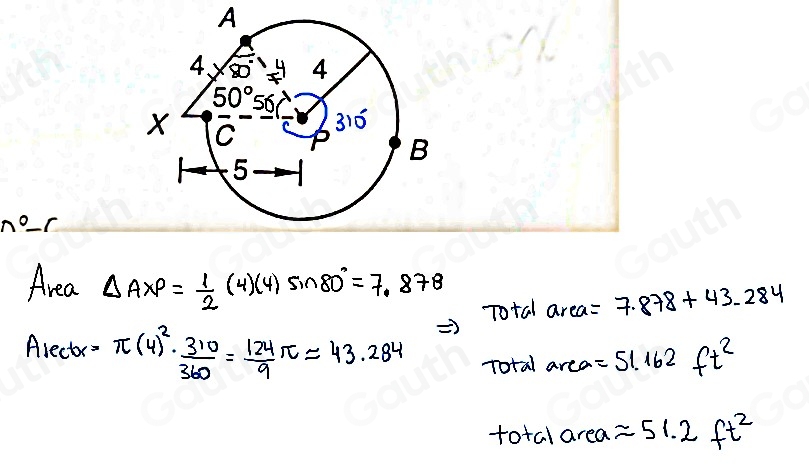 A
4
80°
4
4
50° 50
310°
X
C
P
B
5
Area △AXP = 1/2 (4)(4) sin80° = 7.878
Asector = π(4)² · 310/360 = 124/9 π ≈ 43.284
⇒
Total area = 7.878 + 43.284
Total area = 51.162 ft²
total area ≈ 51.2 ft²
Gauth